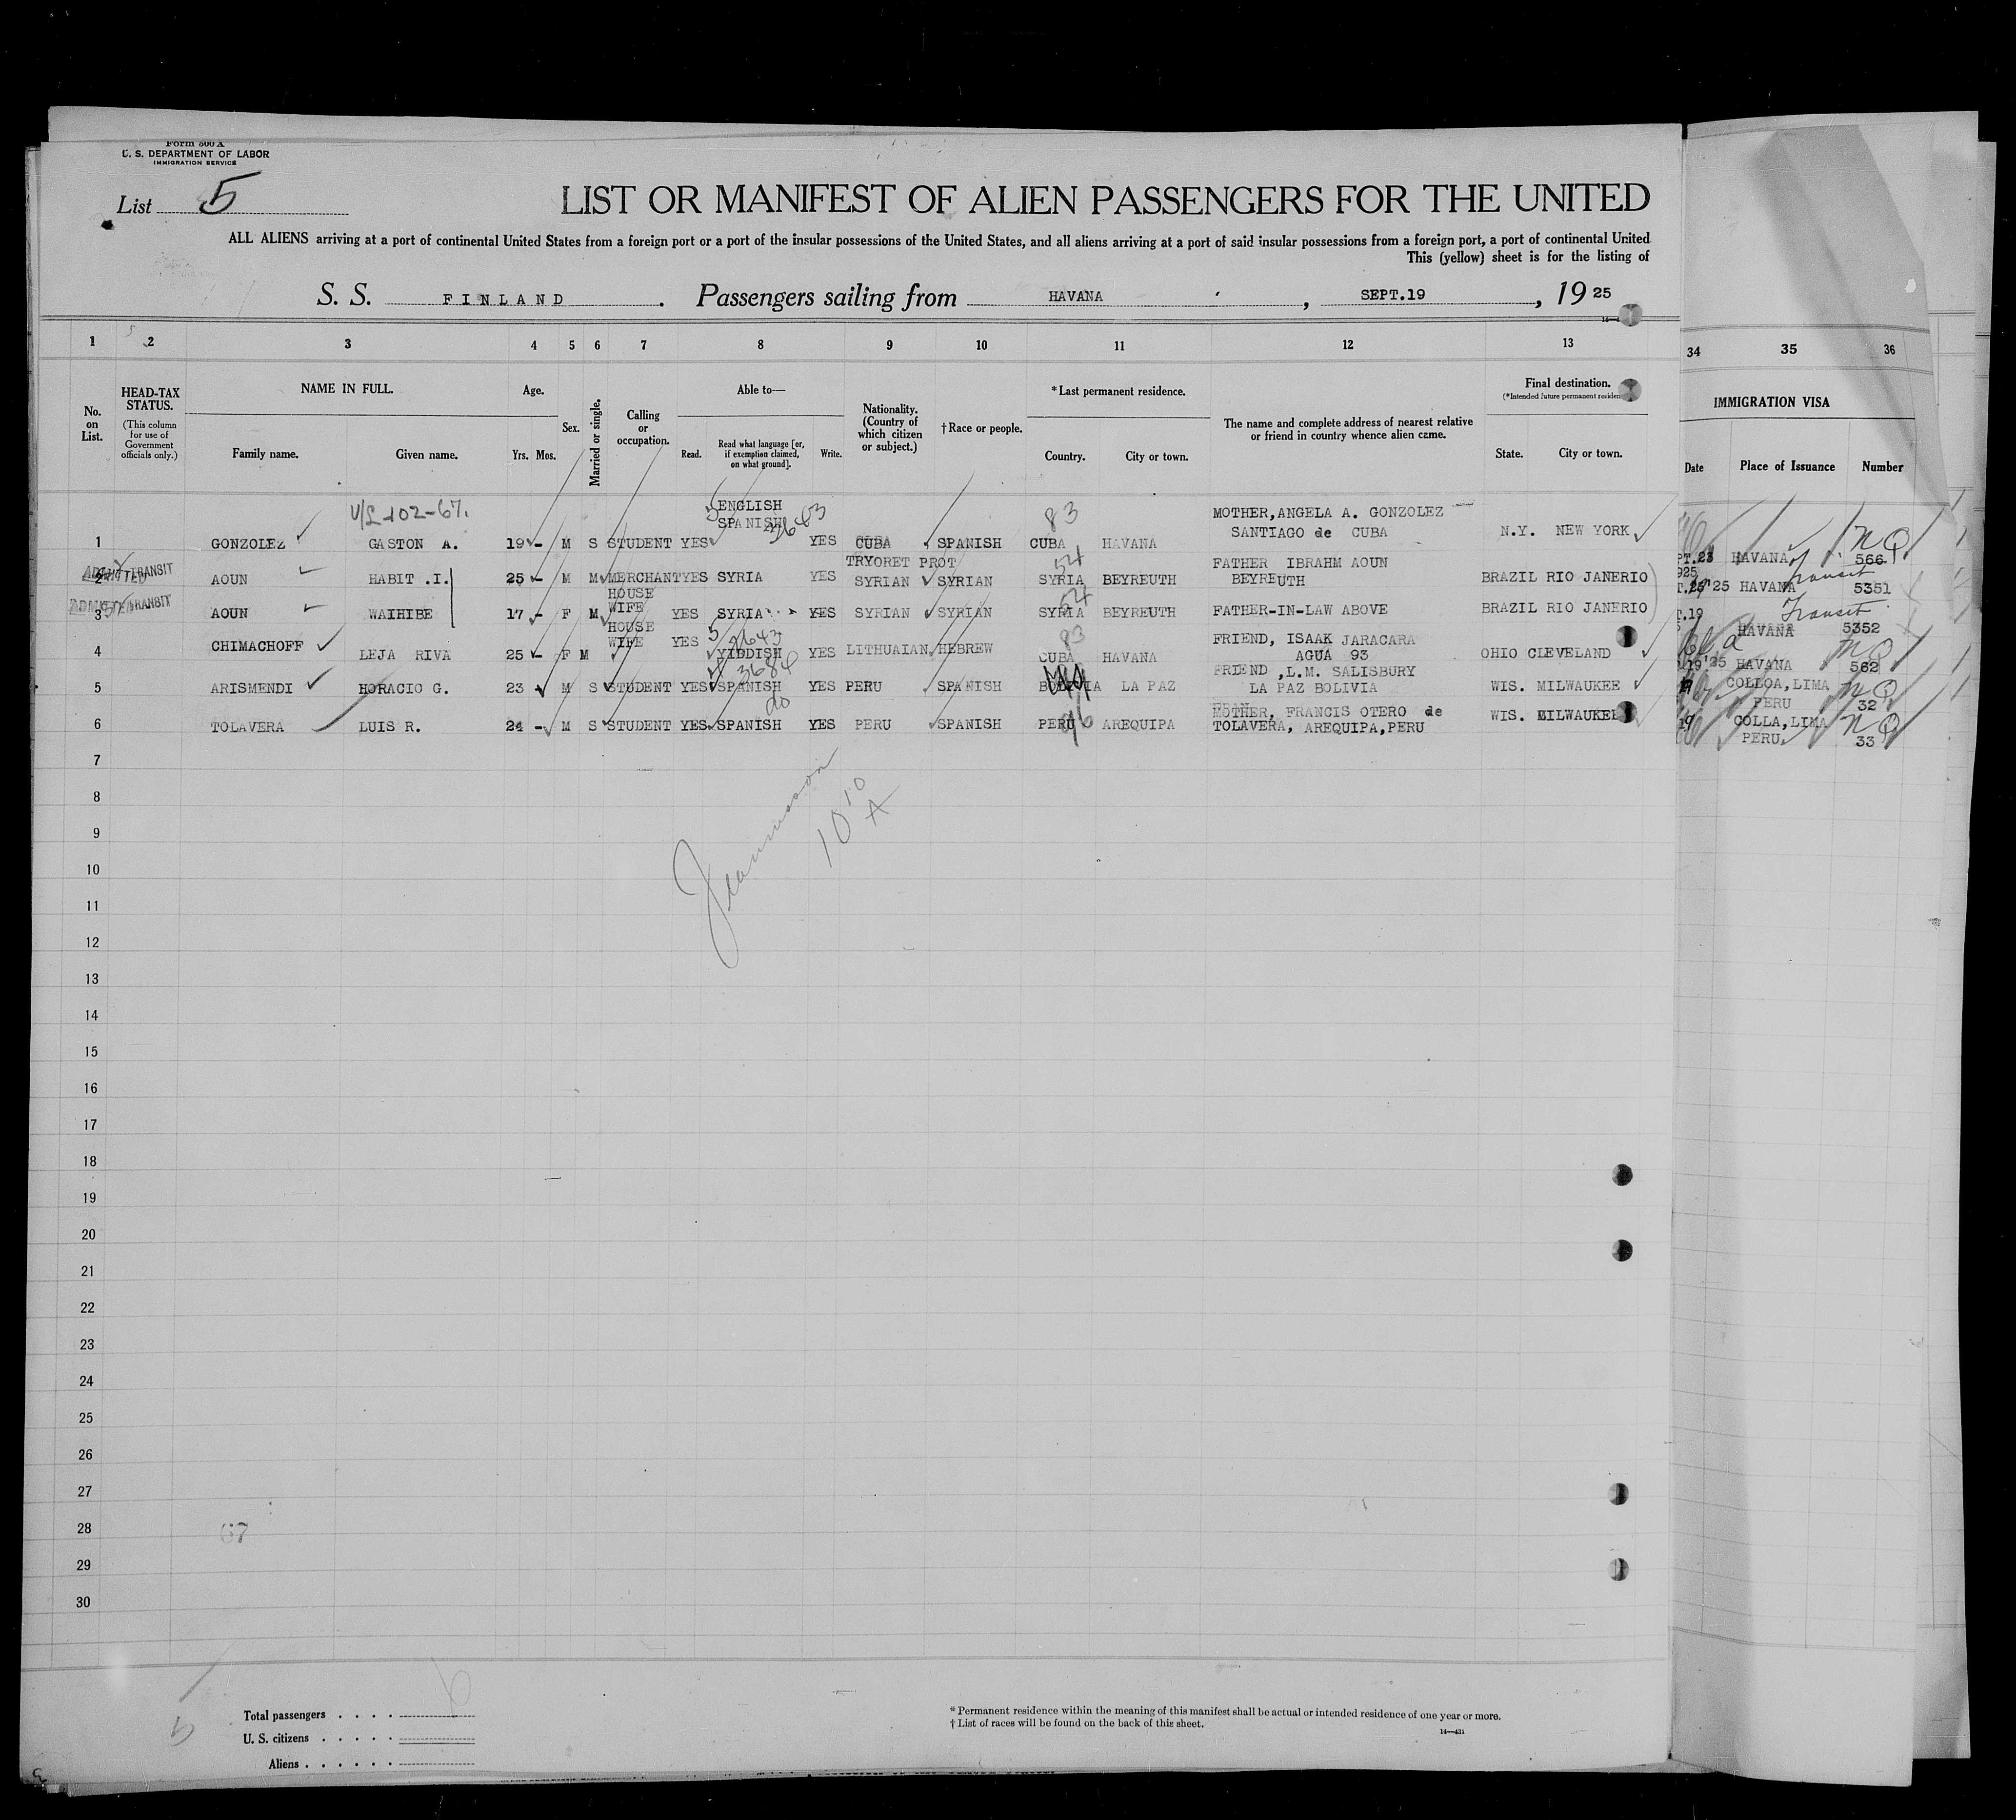 Form 500 A
U. S. DEPARTMENT OF LABOR
IMMIGRATION SERVICE
List 5
LIST OR MANIFEST OF ALIEN PASSENGERS FOR THE UNITED
ALL ALIENS arriving at a port of continental United States from a foreign port or a port of the insular possessions of the United States, and all aliens arriving at a port of said insular possessions from a foreign port, a port of continental United
This (yellow) sheet is for the listing of
S. S. FINLAND. Passengers sailing from HAVANA, SEPT.19, 19 25
1 2 3 4 5 6 7 8 9 10 11 12 13 34 35 36
No. on List.
HEAD-TAX STATUS.
(This column for use of Government officials only.)
NAME IN FULL.
Family name. Given name.
Age.
Yrs. Mos.
Sex.
Married or single.
Calling or occupation.
Able to—
Read. Read what language [or, if exemption claimed, on what ground]. Write.
Nationality. (Country of which citizen or subject.)
†Race or people.
*Last permanent residence.
Country. City or town.
The name and complete address of nearest relative or friend in country whence alien came.
Final destination.
(*Intended future permanent residen
State. City or town.
IMMIGRATION VISA
Date Place of Issuance Number
V/L 102-67.
ENGLISH
SPANISH
83
MOTHER,ANGELA A. GONZOLEZ
SANTIAGO de CUBA
1 GONZOLEZ GASTON A. 19 - M S STUDENT YES YES CUBA SPANISH CUBA HAVANA N.Y. NEW YORK
PT.23 HAVANA 566 NQ
TRYORET PROT
54
FATHER IBRAHM AOUN
ADMITTED TRANSIT
2 AOUN HABIT .I. 25 - M M MERCHANT YES SYRIA YES SYRIAN SYRIAN SYRIA BEYREUTH BEYREUTH BRAZIL RIO JANERIO
925
'25 HAVANA 5351
Transit
ADMITTED TRANSIT
HOUSE
WIFE
54
3 AOUN WAIHIBE 17 - F M YES SYRIA YES SYRIAN SYRIAN SYRIA BEYREUTH FATHER-IN-LAW ABOVE BRAZIL RIO JANERIO
T.19
HAVANA 5352
Transit
HOUSE
WIFE
83
FRIEND, ISAAK JARACARA
AGUA 93
4 CHIMACHOFF LEJA RIVA 25 - F M YES YIDDISH YES LITHUAIAN HEBREW CUBA HAVANA OHIO CLEVELAND
19'25 HAVANA 562 NQ
3684
FRIEND ,L.M. SALISBURY
LA PAZ BOLIVIA
5 ARISMENDI HORACIO G. 23 M S STUDENT YES SPANISH YES PERU SPANISH BOLIVIA LA PAZ WIS. MILWAUKEE
COLLOA, LIMA
PERU 32 NQ
do
96
MOTHER, FRANCIS OTERO de
TOLAVERA, AREQUIPA,PERU
6 TOLAVERA LUIS R. 24 - M S STUDENT YES SPANISH YES PERU SPANISH PERU AREQUIPA WIS. MILWAUKEE
19 COLLA,LIMA
PERU 33 NQ
7
8
10 10 A
9
10
11
12
13
14
15
16
17
18
19
20
21
22
23
24
25
26
27
28
67
29
30
Total passengers . . . . 6
U. S. citizens . . . . .
Aliens . . . . . .
5
* Permanent residence within the meaning of this manifest shall be actual or intended residence of one year or more.
† List of races will be found on the back of this sheet.
14—431